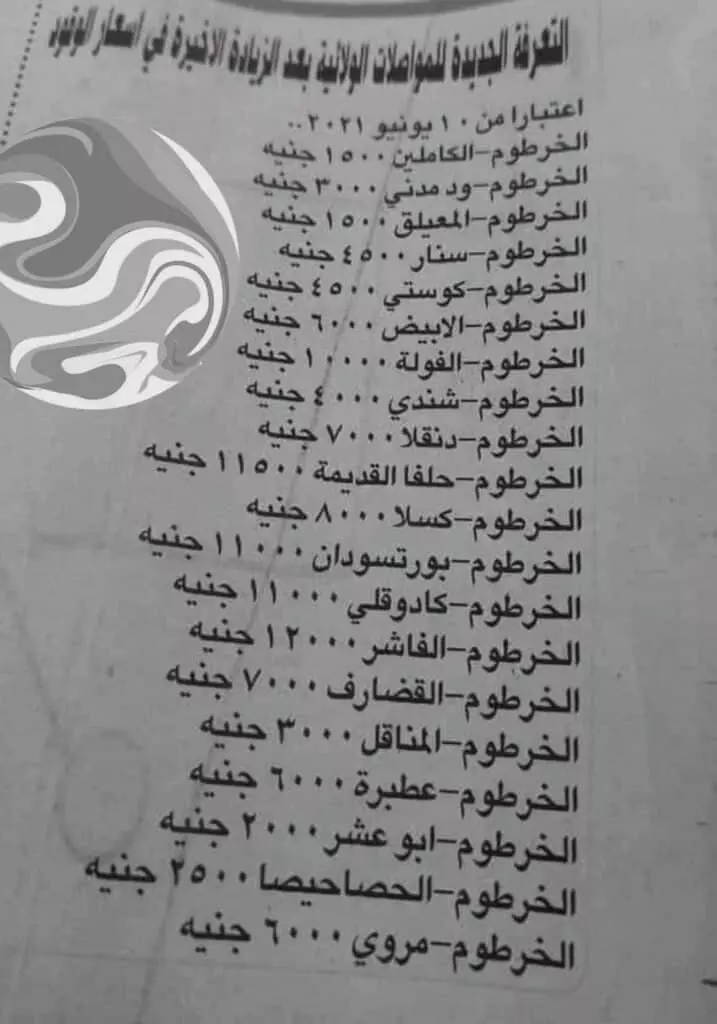 التعرفة الجديدة للمواصلات الولائية بعد الزيادة الاخيرة في اسعار الوقود
اعتبارا من ١٠ يونيو ٢٠٢١..
الخرطوم-الكاملين ١٥٠٠ جنيه
الخرطوم-ود مدني ٣٠٠٠ جنيه
الخرطوم-المعيلق ١٥٠٠ جنيه
الخرطوم-سنار ٤٥٠٠ جنيه
الخرطوم-كوستي ٤٥٠٠ جنيه
الخرطوم-الابيض ٦٠٠٠ جنيه
الخرطوم-الفولة ١٠٠٠٠ جنيه
الخرطوم-شندي ٤٠٠٠ جنيه
الخرطوم-دنقلا ٧٠٠٠ جنيه
الخرطوم-حلفا القديمة ١١٥٠٠ جنيه
الخرطوم-كسلا ٨٠٠٠ جنيه
الخرطوم-بورتسودان ١١٠٠٠ جنيه
الخرطوم-كادوقلي ١١٠٠٠ جنيه
الخرطوم-الفاشر ١٢٠٠٠ جنيه
الخرطوم-القضارف ٧٠٠٠ جنيه
الخرطوم-المناقل ٣٠٠٠ جنيه
الخرطوم-عطبرة ٦٠٠٠ جنيه
الخرطوم-ابو عشر ٢٠٠٠ جنيه
الخرطوم-الحصاحيصا ٢٥٠٠ جنيه
الخرطوم-مروي ٦٠٠٠ جنيه